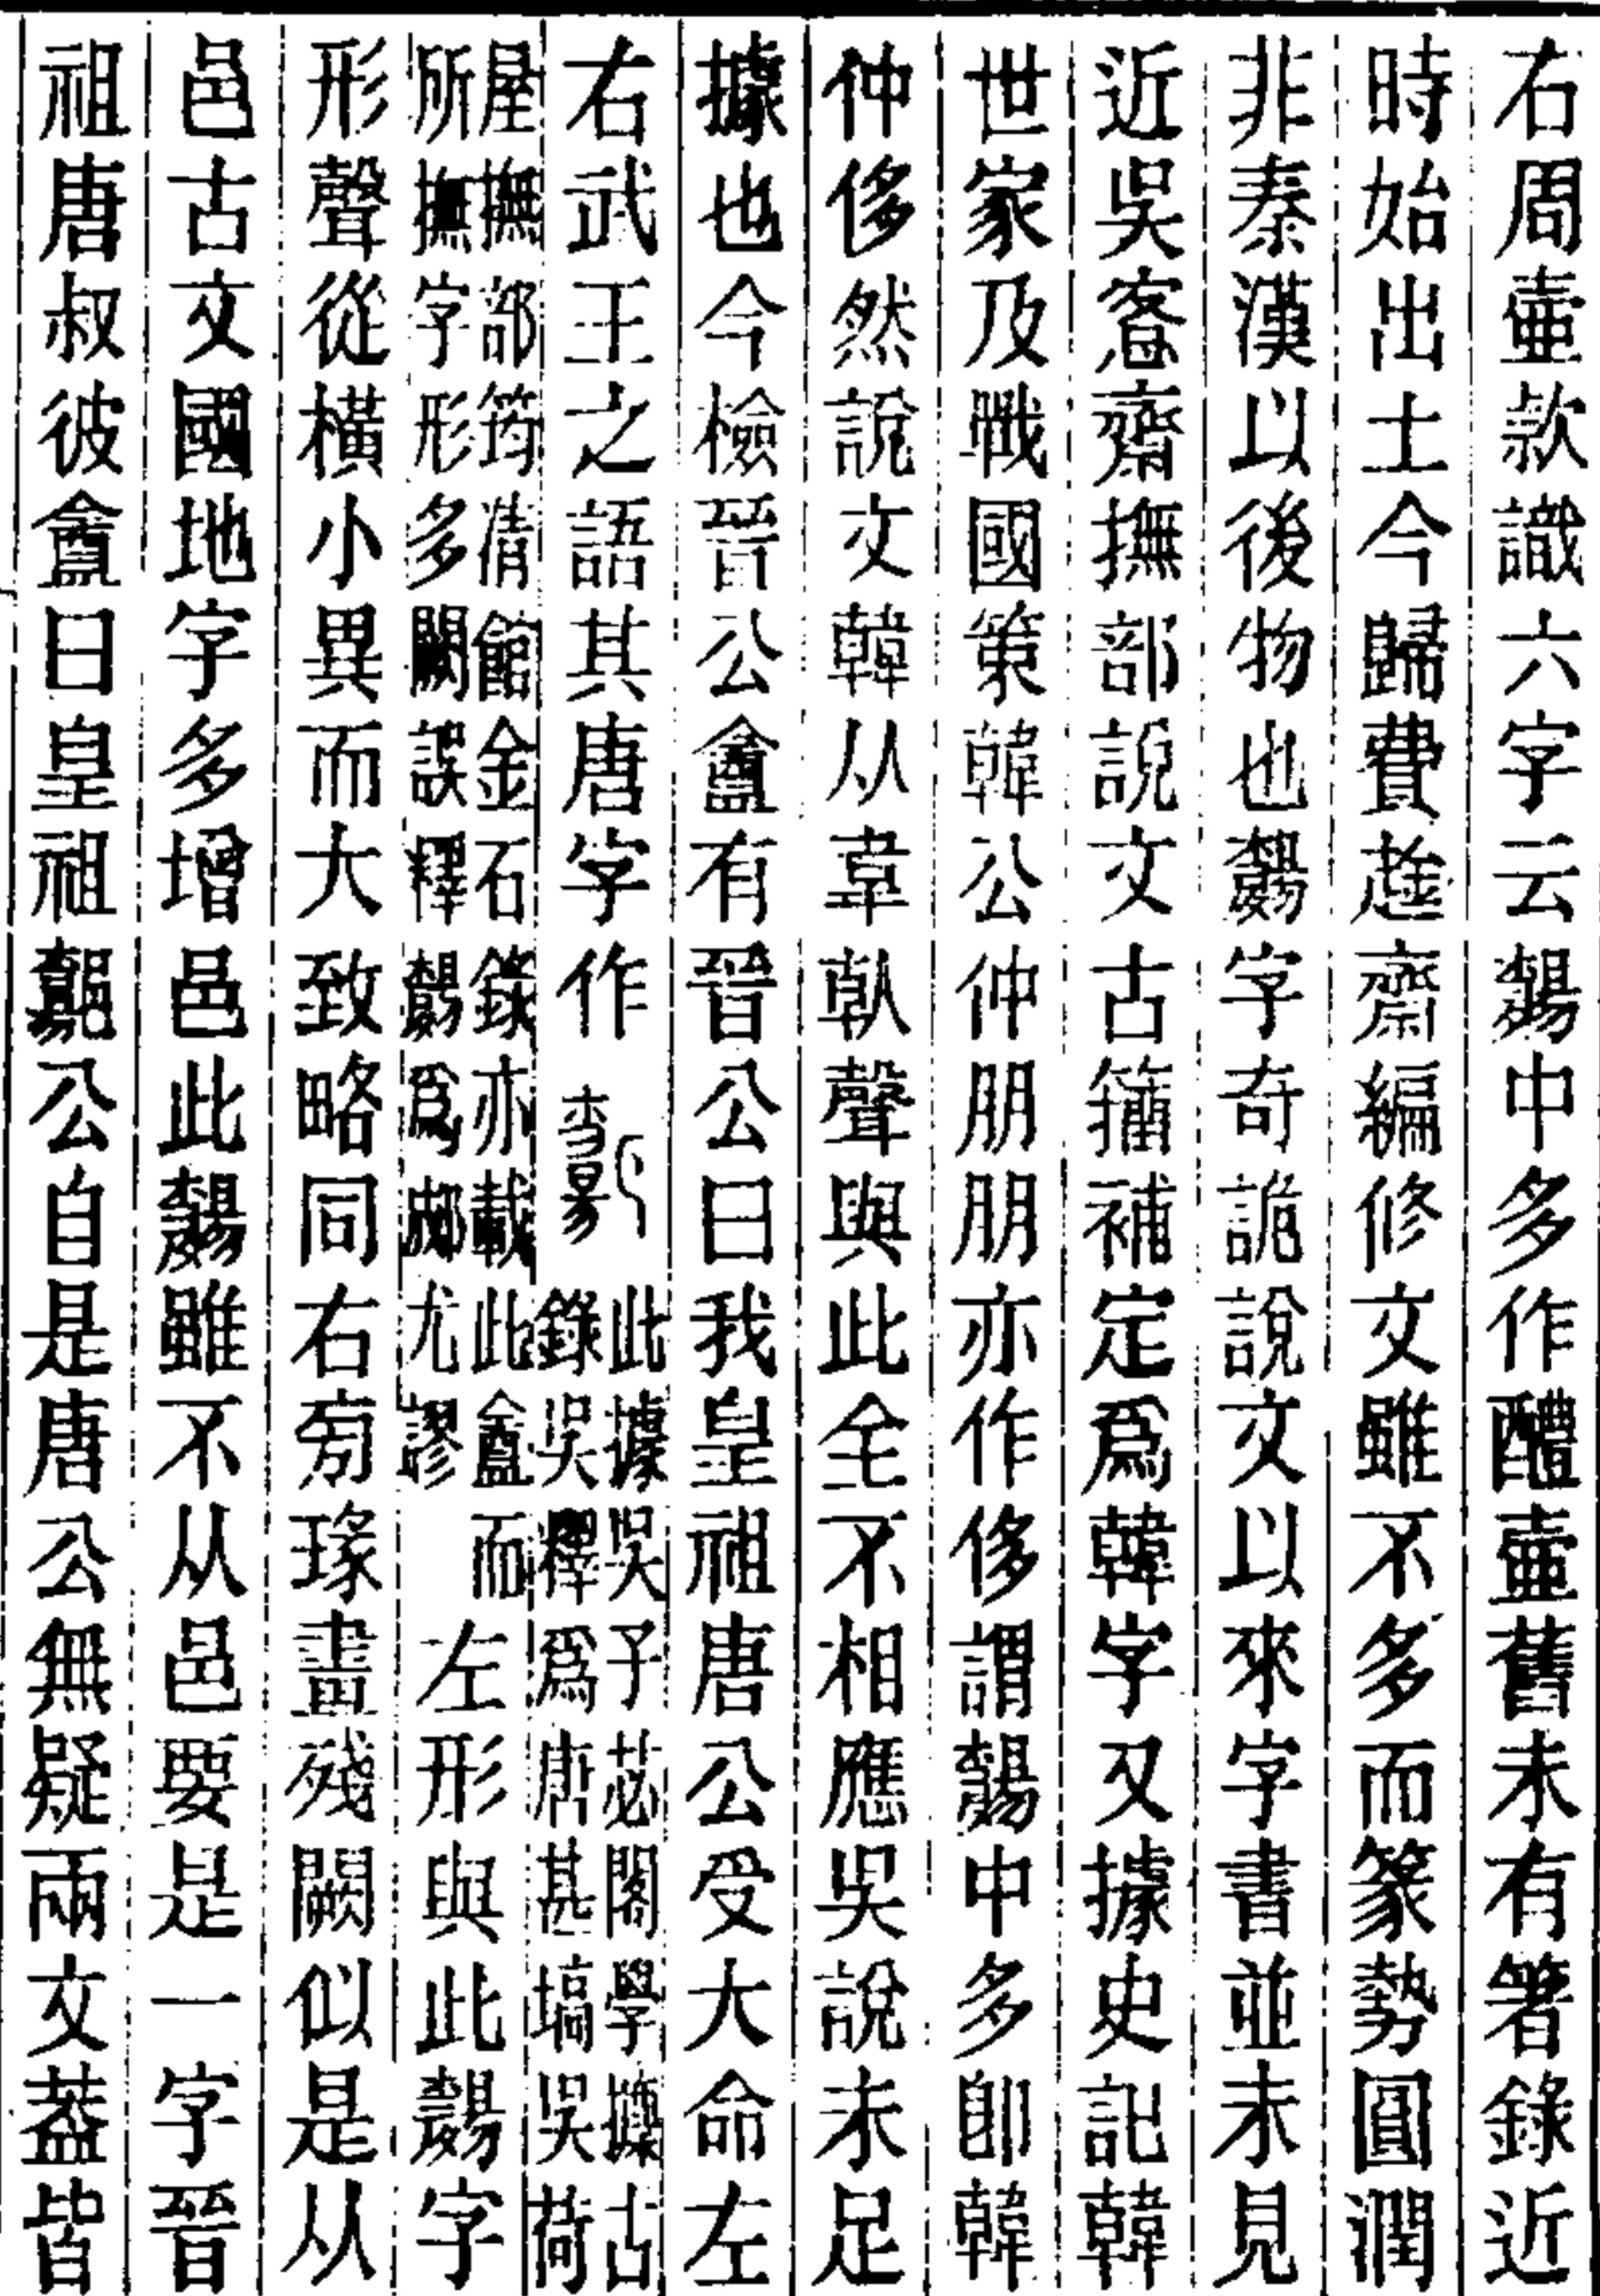 右周壷款識六字云中多作醴壷舊未有箸錄近
時始出土今歸費趛齋編修文雖不多而篆勢圓潤
非秦漢以後物也字奇詭說文以來字書並未見
近吳愙齋撫部說文古籀補定爲韓字又據史記韓
世家及戰國策韓公仲朋朋亦作侈謂中多卽韓
仲侈然說文韓从韋倝聲與此全不相應吳說未足
據也今檢晉公盦有晉公曰我皇祖唐公受大命左
右武王之語其唐字作
此據吳子苾閣學攈古
錄吳釋爲唐甚塙吳荷
屋撫部筠清館金石錄亦載此盦而
所撫字形多闕誤釋爲尤謬
左形與此字
形聲從橫小異而大致略同右㫄瑑畫殘闕似是从
邑古文國地字多增邑此雖不从邑要是一字晉
祖唐叔彼盦曰皇祖公自是唐公無疑兩文葢皆